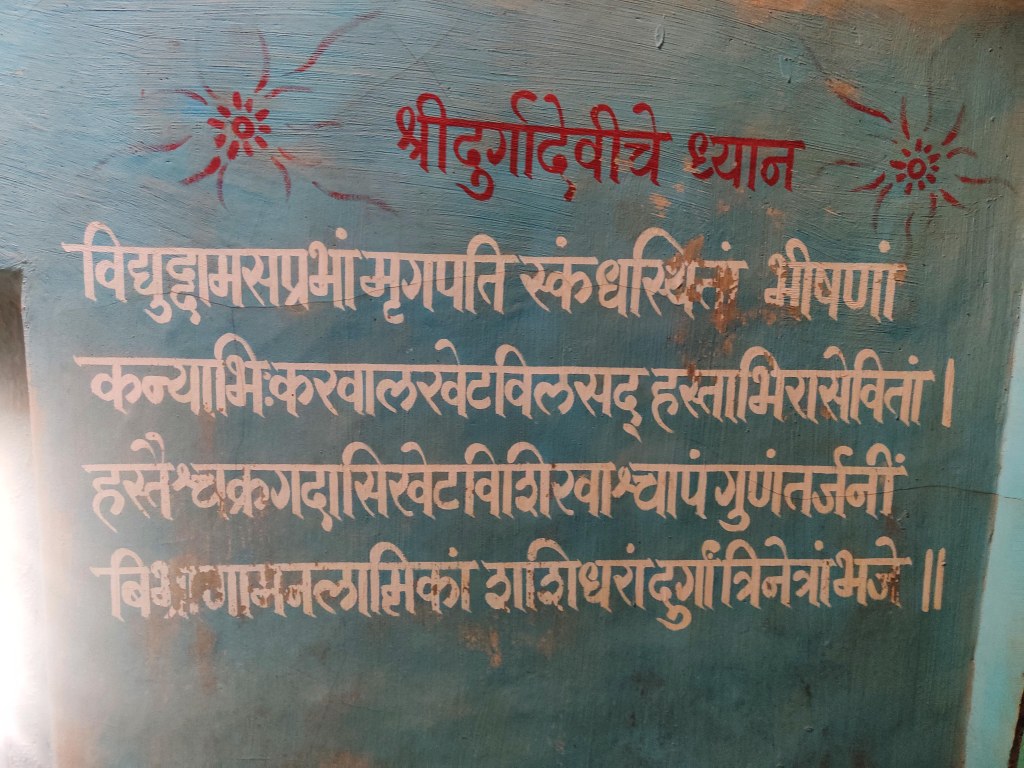 श्रीदुर्गादेवीचे ध्यान
विद्युद्दामसप्रभां मृगपति स्कंधस्थितां भीषणां
कन्याभिःकरवालखेटविलसद् हस्ताभिरासेवितां ।
हस्तैश्चक्रगदासिखेटविशिखाश्चापं गुणंतर्जनीं
बिभ्राणामनलात्मिकां शशिधरांदुर्गां त्रिनेत्रांभजे ॥